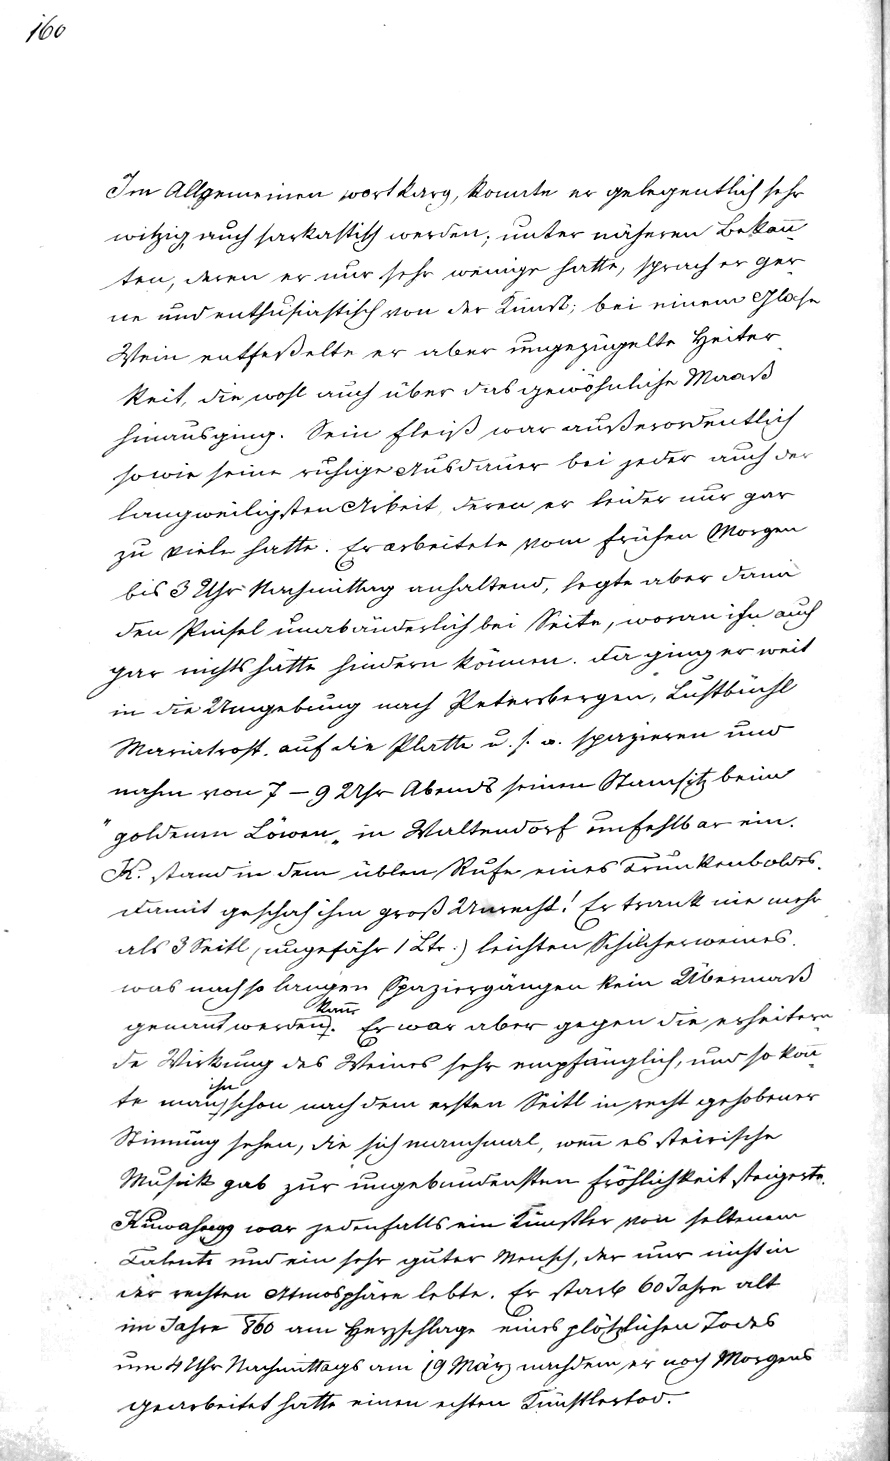 160
Im Allgemeinen wortkarg, konnte er gelegentlich sehr
witzig auch sarkastisch werden; unter näheren Bekan̄-
ten, deren er nur sehr wenige hatte, sprach er ger-
ne und enthusiastisch von der Kunst; bei einem Glase
Wein entfeßelte er aber ungezügelte Heiter-
keit, die wohl auch über das gewöhnliche Maaß
hinausging. Sein Fleiß war außerordentlich
sowie seine ruhige Ausdauer bei jeder auch der
langweiligsten Arbeit, deren er leider nur gar
zu viele hatte. Er arbeitete vom frühen Morgen
bis 3 Uhr Nachmittag anhaltend, legte aber dann
den Pinsel unabänderlich bei Seite, woran ihn auch
gar nichts hätte hindern können. Da ging er weit
in die Umgebung nach Petersbergen, Lustbüchl
Mariatrost, auf die Platte u. s. w. spazieren und
nahm von 7 – 9 Uhr Abends seinen Stamsitz beim
"goldenen Löwen" in Waltendorf unfehlbar ein.
K. stand in dem üblen Rufe eines Trunkenboldes.
damit geschah ihm groß Unrecht! Er trank nie mehr
als 3 Seitl (ungefähr 1 Ltr.) leichten Schilcherweines.
was nach so langen Spaziergängen kein Übermaß
genannt werden kann. Er war aber gegen die erheitern-
de Wirkung des Weines sehr empfänglich, und so kon̄-
te man ihn schon nach dem ersten Seitl in recht gehobener
Stimmung sehen, die sich manchmal, wen̄ es steirische
Musik gab zur ungebundensten Fröhlichkeit steigerte.
Kuwaßegg war jedenfalls ein Künstler von seltenem
Talente und ein sehr guter Mensch, der nur nicht in
der rechten Atmosphäre lebte. Er starb 60 Jahre alt
im Jahre 860 am Herzschlage eines plötzlichen Todes
um 4 Uhr Nachmittags am 19 März nachdem er noch Morgens
gearbeitet hatte einen echten Künstlertod.